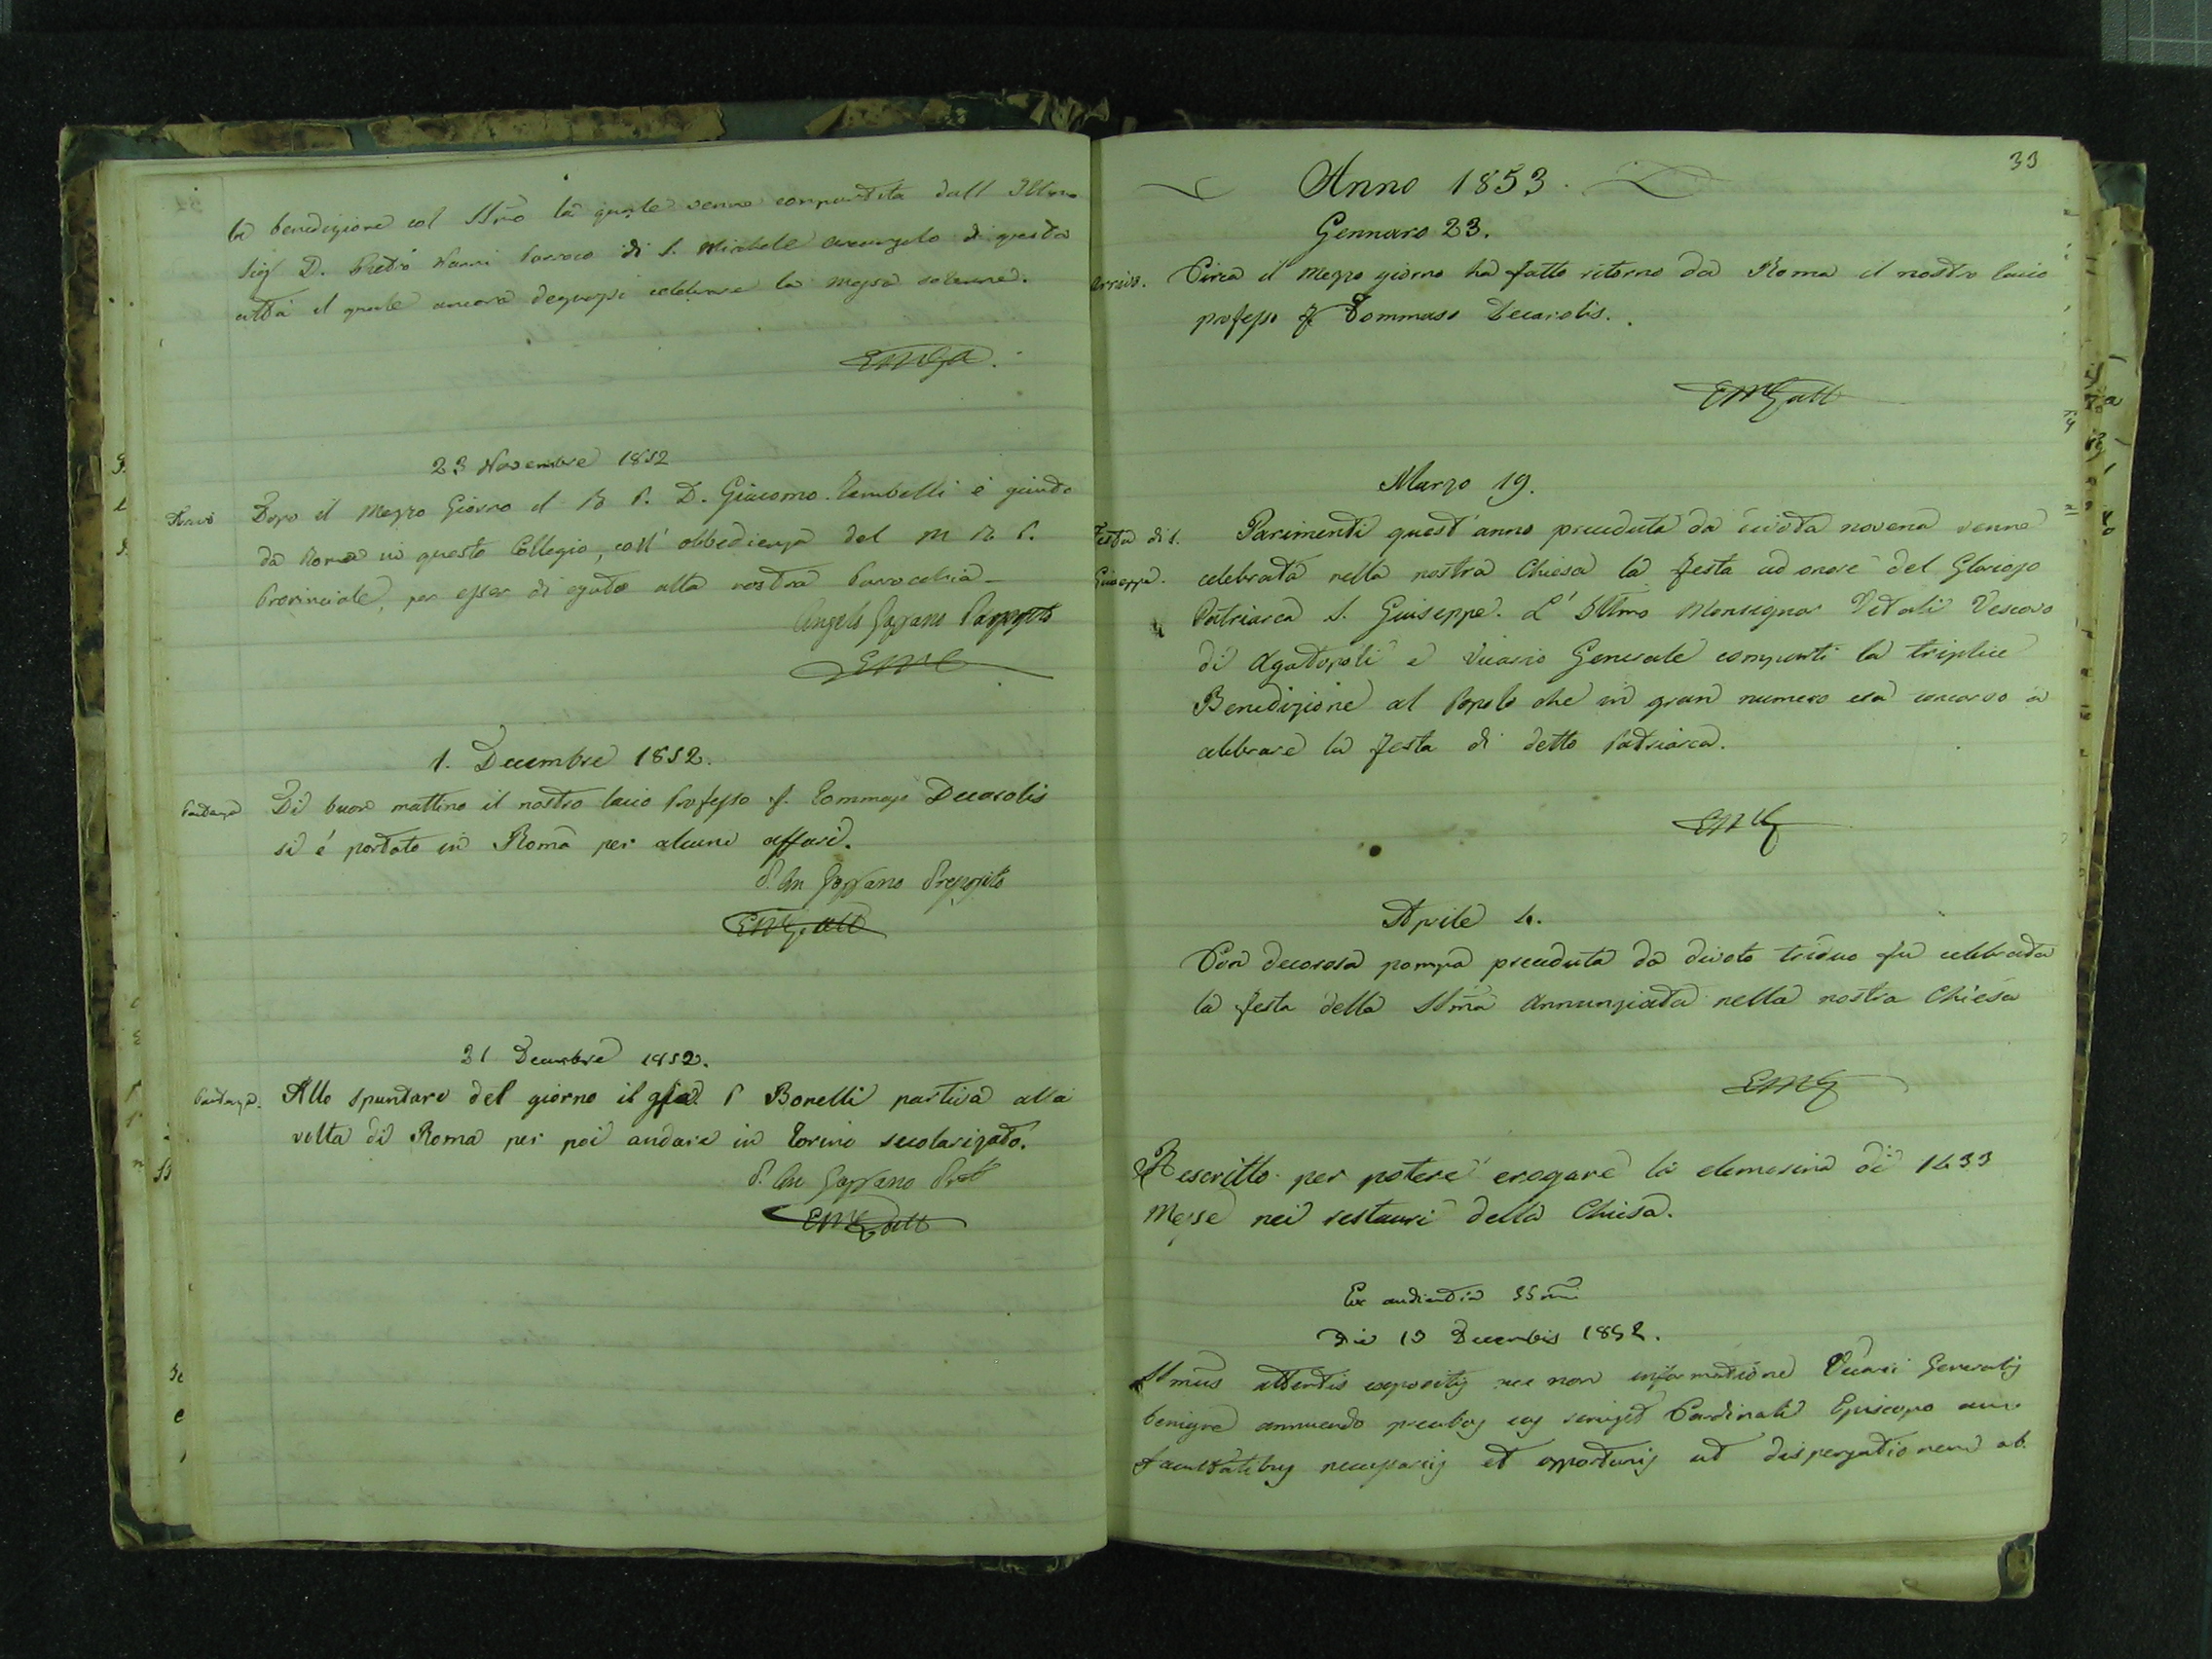 la benedizione col SSmo la quale venne compartita dall' Illmo
Sigr D. Pietro Nanni Parroco di S. Michele Arcangelo di questa
città il quale ancora degnossi celebrare la messa solenne.
23 Novembre 1852
Arrivo
Dopo il mezzo Giorno il R P. D. Giacomo Zambelli è giunto
da Roma in questo Collegio, coll' obbedienza del M R P.
Provinciale, per esser di ajuto alla nostra Parrocchia
Angelo Gazzano Preposito
1. Decembre 1852.
Partenza
Di buon mattino il nostro laico Professo f. Tommaso Decarolis
si è portato in Roma per alcuni affari.
P. An Gazzano Preposito
EMGatt
21 Decembre 1852.
Partenza.
Allo spuntare del giorno il già P Bonelli partiva alla
volta di Roma per poi andare in Torino secolarizato.
P. An Gazzano Prep
EMGatt
33
Anno 1853.
Gennaro 23.
Arrivo.
Circa il mezzo giorno ha fatto ritorno da Roma il nostro laico
professo f. Tommaso Decarolis.
EMGatt
Marzo 19.
Festa di S.
Giuseppe.
Parimenti quest' anno preceduta da divota novena venne
celebrata nella nostra Chiesa la festa ad onore del Glorioso
Patriarca S. Giuseppe. L' Illmo Monsignor Vitali Vescovo
di Agatopoli e Vicario Generale compartì la triplice
Benedizione al Popolo che in gran numero era concorso a
celebrare la festa di detto Patriarca.
EMG
Aprile 4.
Con decorosa pompa preceduta da divoto triduo fu celebrata
la festa della SSma Annunziata nella nostra Chiesa
EMG
Rescritto per potere erogare la elemosina di 1433
Messe nei restauri della Chiesa.
Ex audientia SSmi
Die 13 Decembris 1852.
SSmus attentis expositis nec non informatione Vicarii Generalis
benigne annuendo precibus eas remisit Cardinali Episcopo cum
facultatibus necessariis et opportunis ut dispensationem ab